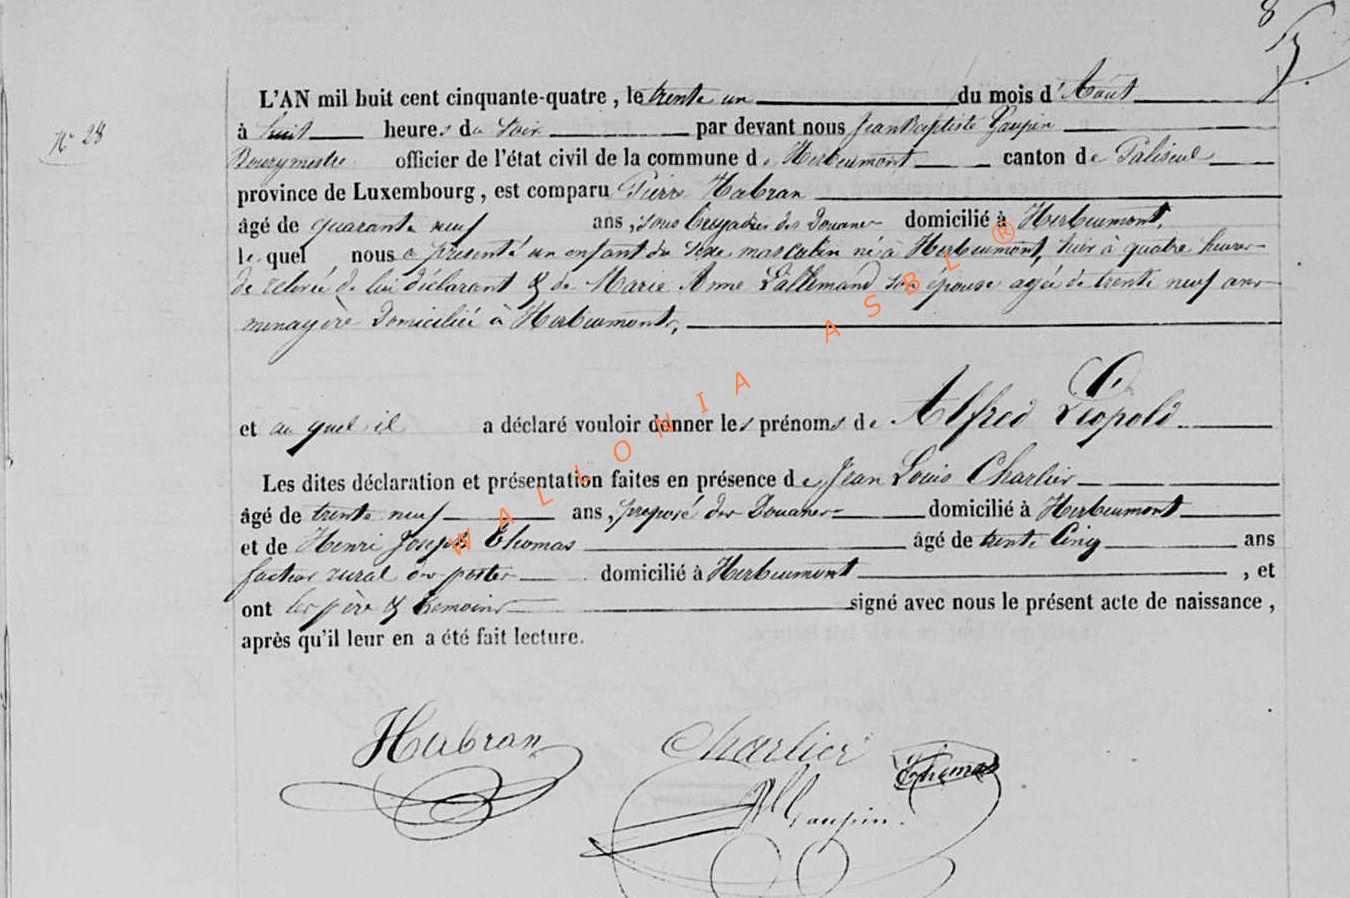 8
N° 28
L'AN mil huit cent cinquante-quatre, le trente un du mois d'Août
à huit heures du soir par devant nous Jean Baptiste Gaupin
Bourgmestre officier de l'état civil de la commune de Herbeumont canton de Paliseul
province de Luxembourg, est comparu Pierre Habran
âgé de quarante neuf ans, sous brigadier des Douanes domicilié à Herbeumont,
lequel nous a présenté un enfant du sexe masculin né à Herbeumont, hier à quatre heures
de relevée de lui déclarant & de Marie Anne Lallemand son épouse agée de trente neuf ans
menagère domiciliée à Herbeumont,
et au quel il a déclaré vouloir donner les prénoms de Alfred Léopold
Les dites déclaration et présentation faites en présence de Jean Louis Charlier
âgé de trente neuf ans, préposé des Douanes domicilié à Herbeumont
et de Henri Joseph Thomas âgé de trente cinq ans
facteur rural des postes domicilié à Herbeumont, et
ont les père & temoins signé avec nous le présent acte de naissance,
après qu'il leur en a été fait lecture.
Habran Charlier Thomas
Gaupin.
WALLONIA ASBL ®